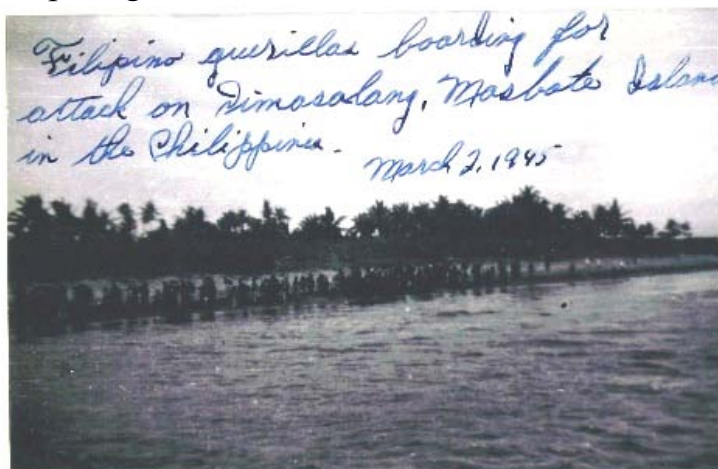 Filipino guerillas boarding for
attack on Dimasalang, Masbate Island
in the Philippines.
March 2, 1945